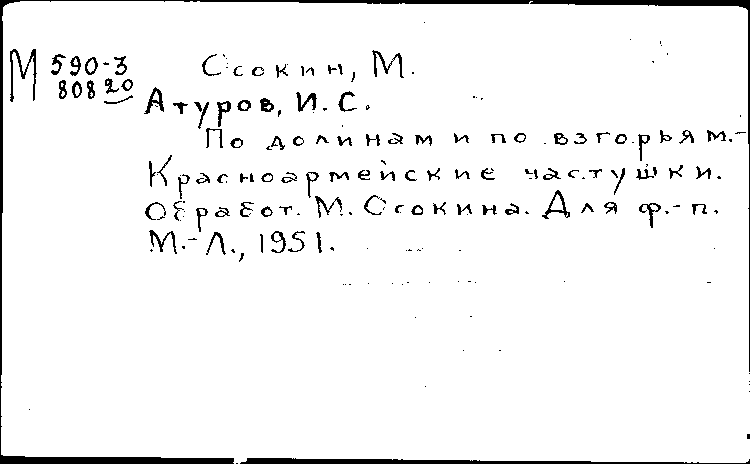 М 590-3 Осокин, М.
808 20
Атуров, И. С.
По долинам и по взгорьям.-
Красноармейские частушки.
Обработ. М. Осокина. Для ф.-п.
М.-Л., 1951.